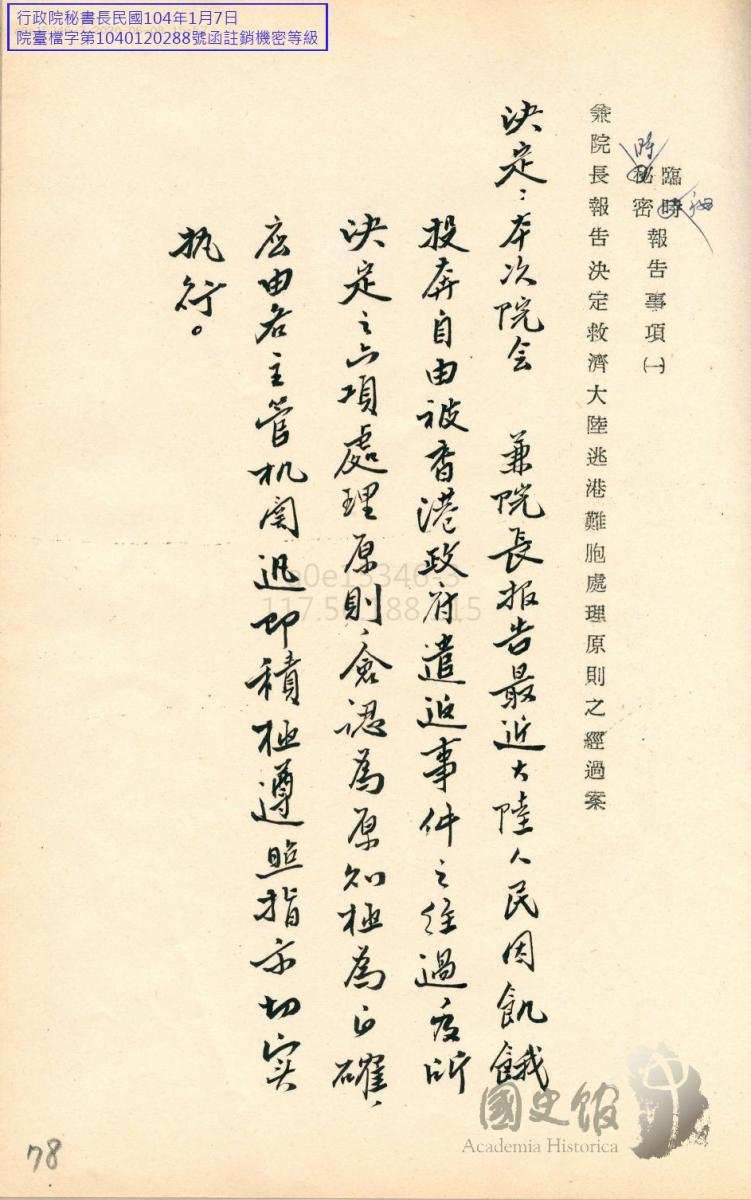 行政院秘書長民國104年1月7日
院臺檔字第1040120288號函註銷機密等級
臨時秘密報告事項㈠
時
秘
兼院長報告決定救濟大陸逃港難胞處理原則之經過案
決定：本次院会　兼院長报告最近大陸人民因飢餓
投奔自由被香港政府遣返事件之经過及所
決定之六項處理原則，僉認為原則極為正確，
应由各主管机関迅即積極遵照指示切实
执行。
國史館
Academia Historica
78